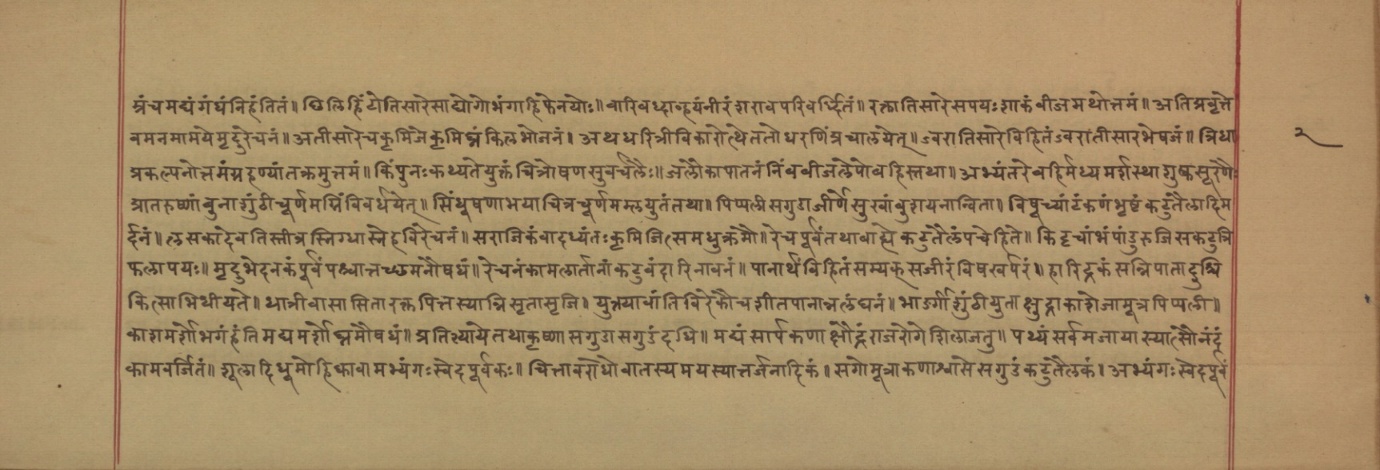 म्रंचमद्यंगंधंनिहंतितं॥ घिलिहिंयेतिसारेसाद्योगोभंगाहिफेनयोः॥ वारिवध्दान्हयंनीरंशरावपरिवर्धितं॥ रक्तातिसारेसपयःशाकंबीजमथोत्तमं॥ अतिप्रवृत्ते
वमनमामयेमृदुरेचनं॥ अतीसारेचकृमिजेकृमिघ्नंकिलभोजनं। अथधरित्रीविकारोत्थेततोधरणिंप्रचालयेत्॥ ज्वरातिसारेविहितंज्वरातीसारभेषजं॥ त्रिधा
प्रकल्पनोत्तमंग्रहण्यांतक्रमुत्तमं॥ किंपुनःकथ्यतेयुक्तंचित्रोषणसुवर्चलैः॥ जलौकापातनंनिंबबीजलेपोबहिस्तथा॥ अभ्यंतरेबहिर्मध्यमर्शस्थाशुष्कसूरणैः
प्रातरुष्णांबुनाशुंठीचूर्णमग्निंविवर्धयेत्॥ सिंधूषणाभयाचित्रचूर्णमम्लयुतंतथा॥ पिप्पलीसगुडाजीर्णेसुखांबुशयनान्विता॥ विषूच्यांटंकणंभृष्टंकटुतैलादिम
र्दनं॥ लसकादेवतिस्तीव्रस्निग्धास्नेहविरेचनं॥ सराजिकंवादध्यंतःकृमिजित्समधुक्रमौ॥ रेचपूर्वंतथाबाह्ये कटुतैलंपचेहिते॥ किट्टचांभंपांडुरुजिसकटुत्रि
फलापयः॥ मृदुभेदनकंपूर्वंपश्चात्तच्छमनौषधं॥ रेचनंकामलार्तानांकटुवंदारिनावनं॥ पानार्थंविहितंसम्यक्सजीरंविषखर्परं॥ हारिद्रकंसन्निपाताद्दुश्चि
कित्साभिधीयते॥ धात्रीवासासितारक्तपित्तस्यान्निसृतासृजि। युत्र्याचांतिविरेकौचशीतपानान्नलंघनं॥ भार्ङगीशुंठीयुताक्षुद्राकाशेजामूत्रपिप्पली॥
काशमर्शोभगंहंतिमद्यमर्शोघ्नमौषधं॥ प्रतिश्यायेतथाकृष्णासगुडासगुडंदधि॥ मद्यंसार्षकणाक्षौद्रंराजरोगेशिलाजतु॥ पथ्यंसर्वमजायास्यात्सौनंदं
कामवर्जितं॥ शूलादिधूमोहिक्कावामभ्यंगःस्वेदपूर्वकः॥ चित्तावरोधोवातस्यमयस्यात्तर्जनादिकं॥ सगोमूत्राकणाश्वासेसगुडंकटुतैलकं। अभ्यंगःस्वेदपूर्वं
२